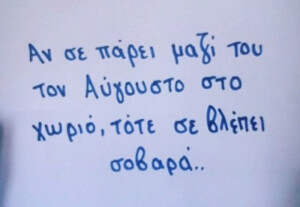 Αν σε πάρει μαζί του
τον Αύγουστο στο
χωριό, τότε σε βλέπει
σοβαρά..